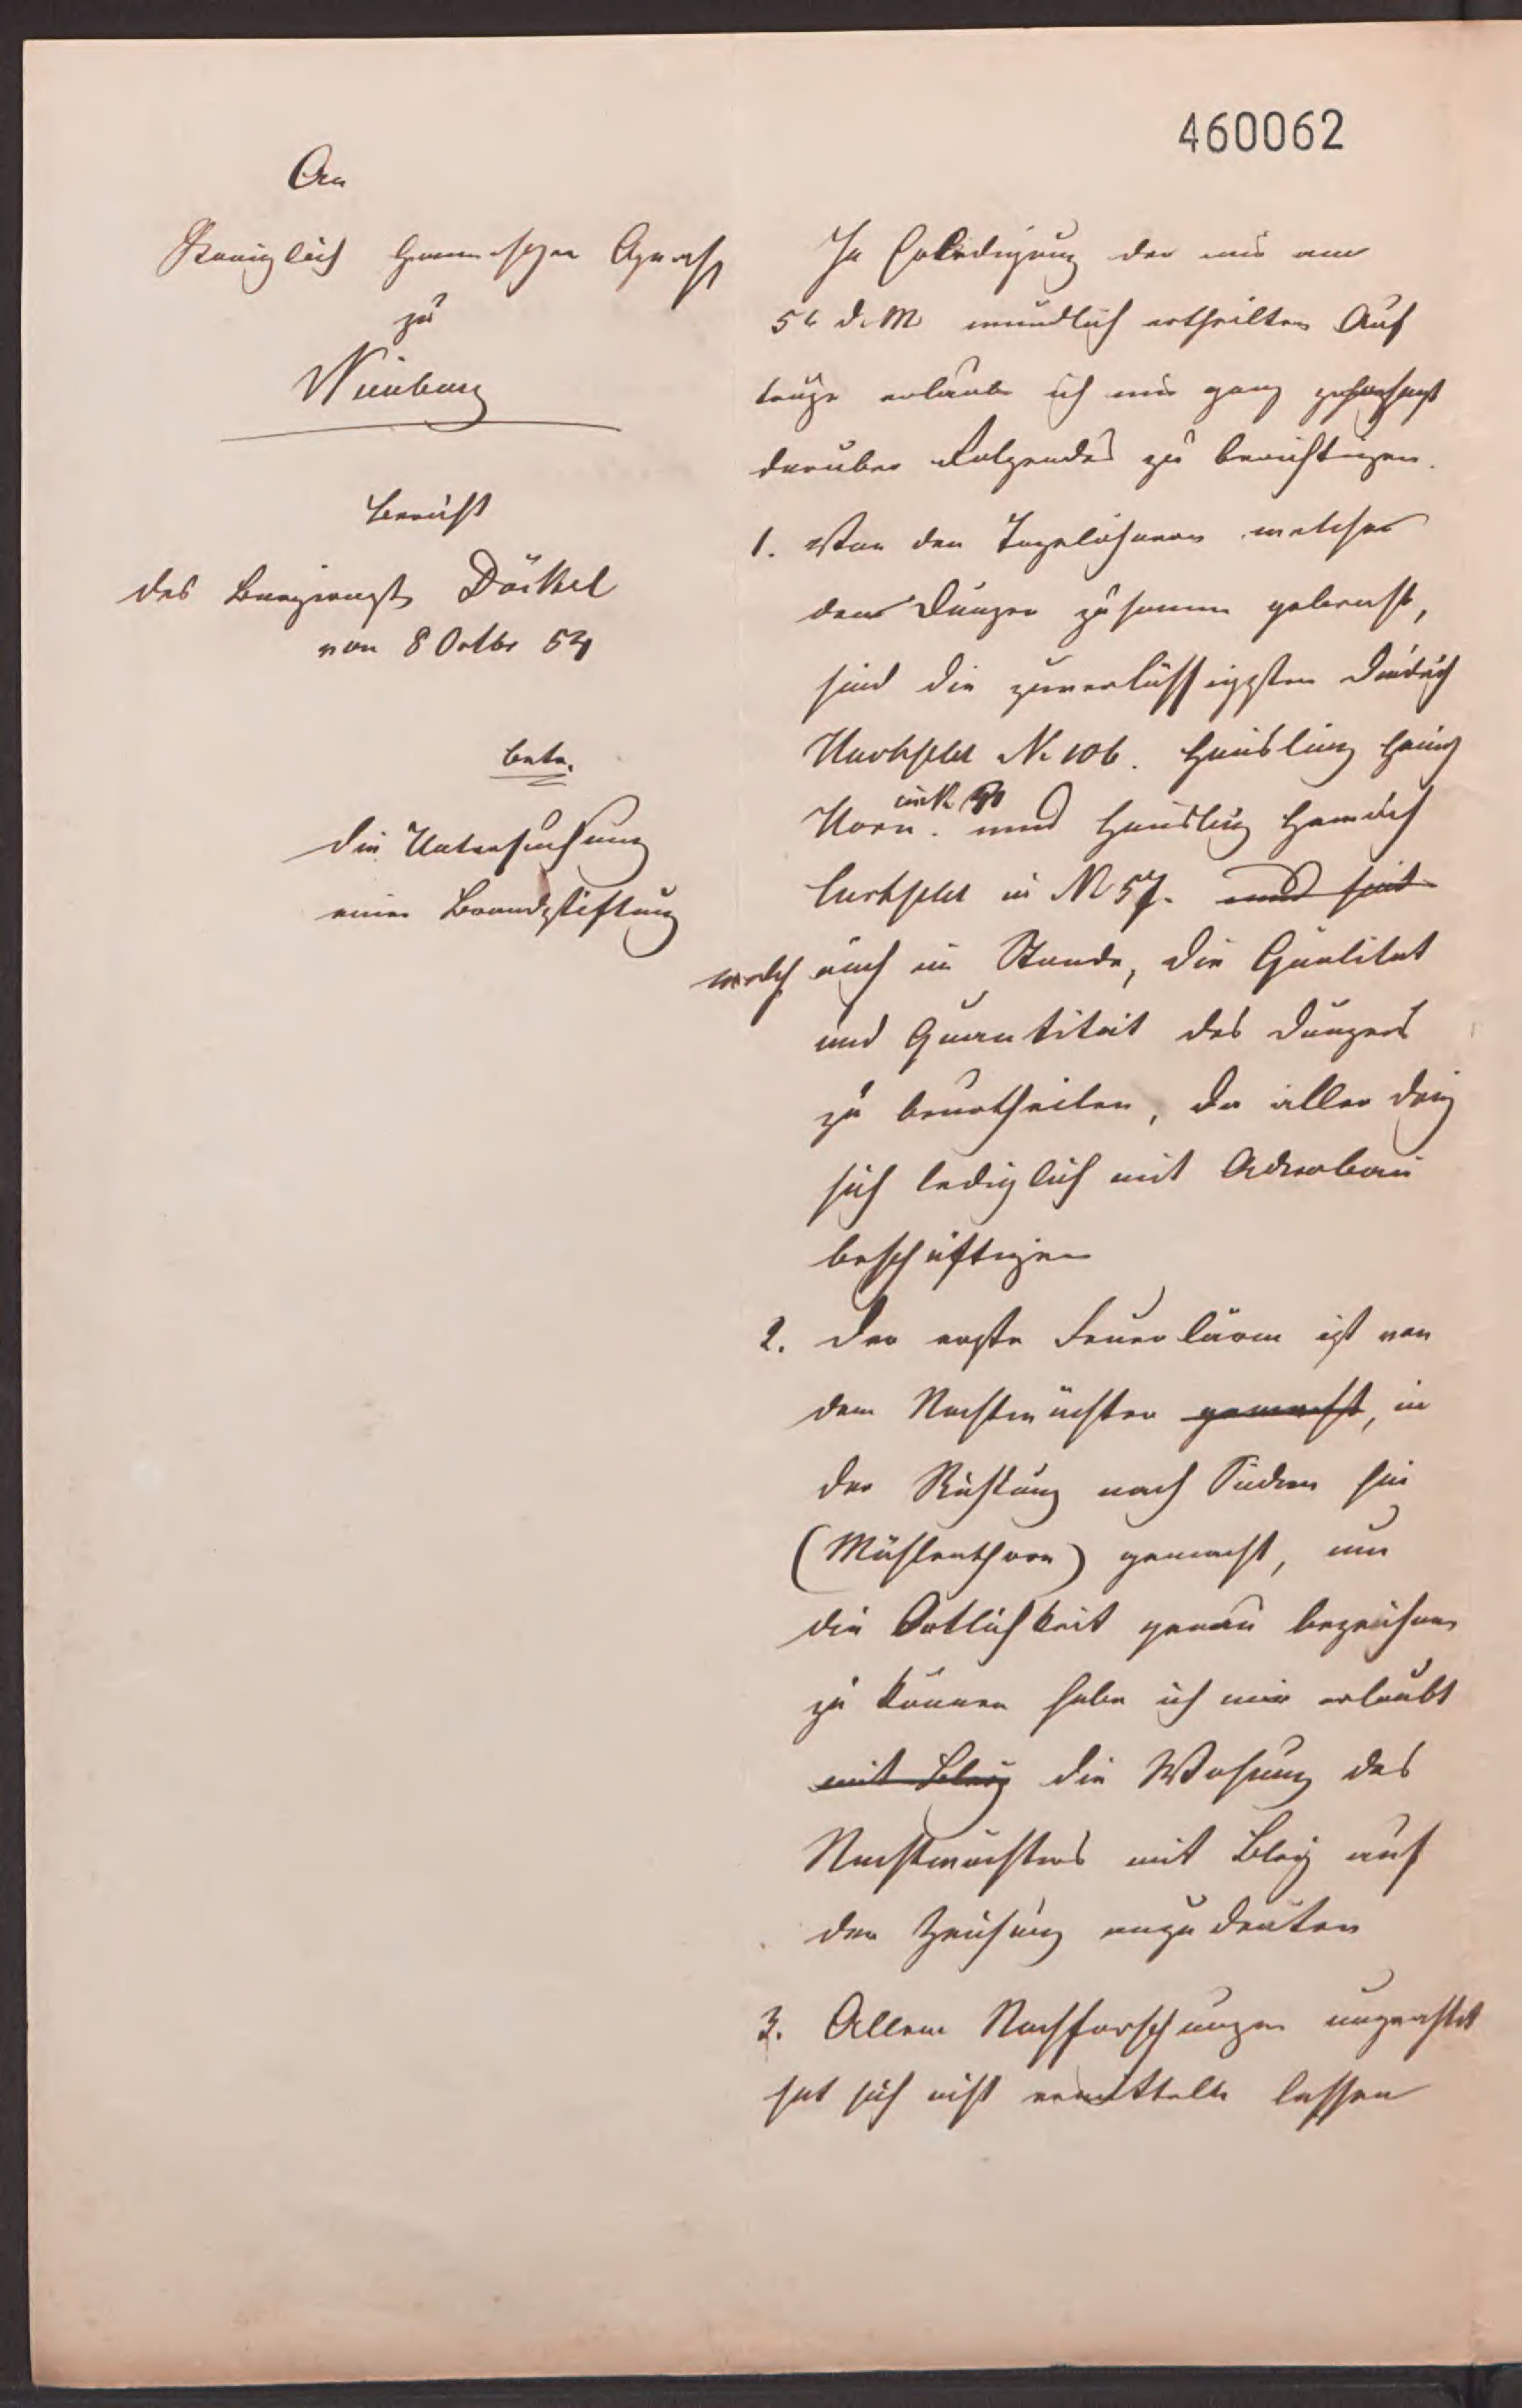 460062
An
Königlich Hannversches
zu
Nienburg
Bericht
des Döckel
von 8 Octbr 54
betr.
die Untersuchung
einer Brandstiftung
In Erledigung der mir am
5t d. M mündlich ertheilten Auf
träge erlaube ich mir ganz gehorsamst
darüber Folgendes zu berichtigen.
1. Von den Tagelöhnern welcher
den Dünger zusamm gebracht,
sind die zuverlässigsten Diedrich
No 106. Häusling Heinr
Horn. in No und Häusling Heinrich
in No 57. und sind
welch auch im Stande, die Qualitat
und Quantität des Düngers
zu beurtheilen, da aller drei
sich lediglich mit Ackerbau
beschäftigen
2. Der erste Feuerlärm ist von
dem Nachtwächter gemacht, in
der Richtung nach Süden hin
(Mühlenthore) gemacht, um
die Örtlichkeit genau bezeichnen
zu können habe ich mir erlaubt
mit Bleiz die Wohnung des
Nachtwächters mit Bleiz auf
der Zeichung anzudeuten
3. Allem Nachforschungen ungeachtet
hat sich nicht ermitteln lassen